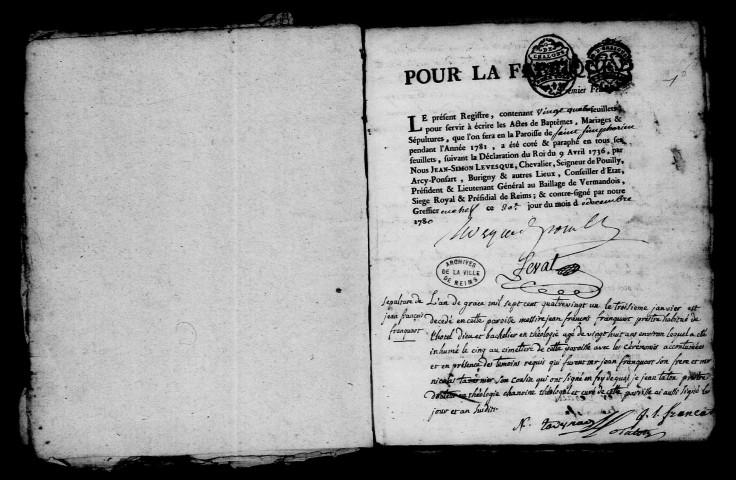 POUR LA FABRIQUE
Premier Feuillet
LE présent Registre, contenant vingt quatre feuillets,
pour servir à écrire les Actes de Baptêmes, Mariages &
Sépultures, que l'on fera en la Paroisse de saint simphorien
pendant l'Année 1781, a été coté & paraphé en tous ses
feuillets, suivant la Déclaration du Roi du 9 Avril 1736, par
Nous JEAN-SIMON LEVESQUE, Chevalier, Seigneur de Pouilly,
Arcy-Ponsart, Burigny & autres Lieux, Conseiller d'Etat,
Président & Lieutenant Général au Bailliage de Vermandois,
Siege Royal & Présidial de Reims; & contre-signé par notre
Greffier en chef ce 20e jour du mois de decembre
1780
ARCHIVES
DE LA VILLE
DE REIMS
sepulture de
jean françois
franquart
L'an de grace mil sept cent quatrevingt un le troisieme janvier est
decedé en cette paroisse messire jean franquart prêtre habitué de
l'hotel dieu et bachelier en theologie agé de vingt huit ans environ lequel a été
inhumé le cinq au cimetiere de cette paroisse avec les cérémonies accoutumées
et en présence des temoins requis qui furent mr jean franquart son frere et mr
nicolas tavernier son cousin qui ont signé en foy de quoi je jean talon prêtre
docteur en théologie chanoine théologal et curé de cette paroisse ai aussi signé les
jour et an susdits